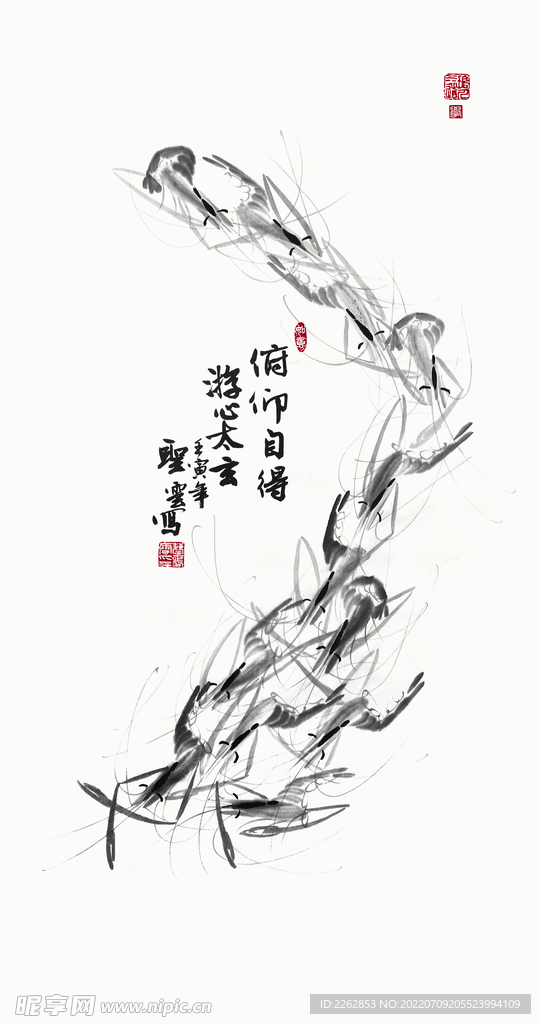 俯仰自得
游心太玄
壬寅年
聖雲寫
昵享网 www.nipic.cn
ID:2262853 NO:20220709205523994109